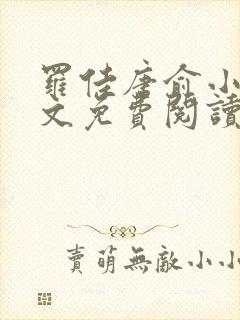 羅佳唐俞小
文免費閱讀
賣萌無敵小小